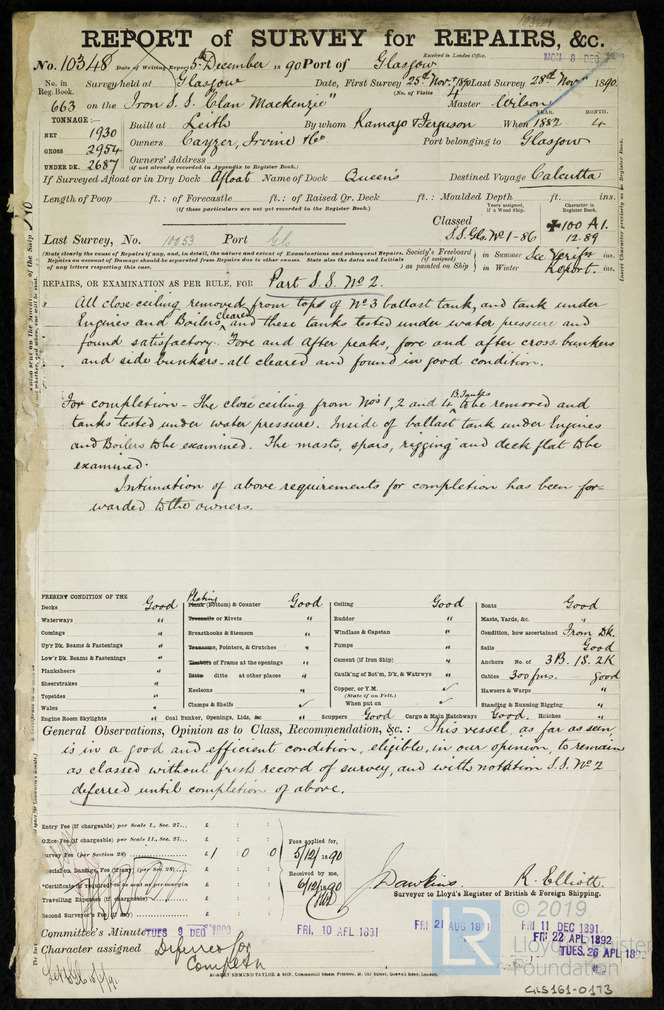 REPORT of SURVEY for REPAIRS, &c.
No. 10348 Date of Writing Report 5th December 1890 Port of Glasgow Received in London Office. MON 8 DEC 1890
No. in Reg. Book. Survey held at Glasgow Date, First Survey 25th Nov. 1890 Last Survey 28th Novr 1890.
(No. of Visits 4)
663 on the Iron S.S. "Clan Mackenzie" Master Wilson
TONNAGE:— YEAR. MONTH.
NET 1930 Built at Leith By whom Ramage & Ferguson When 1882 4
GROSS 2954 Owners Cayzer, Irvine & Co Port belonging to Glasgow
UNDER DK. 2687 Owners' Address
(if not already recorded in Appendix to Register Book.)
If Surveyed Afloat or in Dry Dock Afloat Name of Dock Queen's Destined Voyage Calcutta
Length of Poop ft.: of Forecastle ft.: of Raised Qr. Deck ft.: Moulded Depth ft. ins.
(if these particulars are not yet recorded in the Register Book.)
Years assigned, if a Wood Ship. Character in Register Book.
Classed ✠100 A1.
S.S. Glo. No 1-86 12.89
Last Survey, No. 10053 Port Glo
(State clearly the cause of Repairs if any, and, in detail, the nature and extent of Examinations and subsequent Repairs.
Repairs on account of Damage should be separated from Repairs due to other causes. State also the dates and Initials
of any letters respecting this case.
Society's Freeboard (if assigned) as painted on Ship in Summer See Verifn ins.
in Winter Report. ins.
REPAIRS, OR EXAMINATION AS PER RULE, FOR Part S.S. No 2.
All close ceiling removed from tops of No 3 ballast tank, and tank under
Engines and Boilers cleared, and these tanks tested under water pressure and
found satisfactory. Fore and After peaks, fore and after cross bunkers
and side bunkers - all cleared and found in good condition.
For completion - The close ceiling from Nos 1, 2 and 4 B. Tanks to be removed and
tanks tested under water pressure. Inside of ballast tank under Engines
and Boilers to be examined. The masts, spars, rigging and deck flat to be
examined.
Intimation of above requirements for completion has been for-
warded to the owners.
PRESENT CONDITION OF THE
Decks Good
Waterways "
Comings "
Up'r Dk. Beams & Fastenings "
Low'r Dk. Beams & Fastenings "
Planksheers "
Sheerstrakes "
Topsides "
Wales "
Engine Room Skylights "
Plating
Plank (Bottom) & Counter Good
Treenails or Rivets "
Breasthooks & Stemson "
Transoms, Pointers, & Crutches "
Timbers of Frame at the openings "
Ditto ditto at other places "
Keelsons "
Clamps & Shelfs
Coal Bunker, Openings, Lids, &c "
Ceiling Good
Rudder "
Windlass & Capstan "
Pumps "
Cement (if Iron Ship) "
Caulk'g of Bot'm, D'k, & Watrwys "
Copper, or Y.M.
(State if on Felt.)
When put on
Scuppers Good Cargo & Main Hatchways Good.
Boats Good
Masts, Yards, &c. "
Condition, how ascertained From Dk.
Sails Good
Anchors No. of 3B. 1S. 2K
Cables 300 fms. good
Hawsers & Warps "
Standing & Running Rigging "
Hatches "
General Observations, Opinion as to Class, Recommendation, &c.: This vessel, as far as seen,
is in a good and efficient condition, eligible, in our opinion, to remain
as classed without fresh record of survey, and with notation S.S. No 2
deferred until completion of above.
Entry Fee (if chargeable) per Scale I., Sec. 27... £ : :
Office Fee (if chargeable) per Scale II., Sec. 27... £ : :
Survey Fee (per Section 28) £ 1 : 0 : 0
Special or Damage Fee (if any) (per Sec. 28) £ : :
*Certificate (if required) to be sent as per margin
Travelling Expenses (if chargeable) £ : :
Second Surveyor's Fee (if any) £ : :
Fees applied for, 5/12/1890
Received by me, 6/12/1890
J Dawkins. R. Elliott.
Surveyor to Lloyd's Register of British & Foreign Shipping.
Committee's Minute TUES 9 DEC 1890 FRI. 10 APL 1891 FRI 21 AUG 1891 FRI 11 DEC 1891.
FRI 22 APL 1892
TUES. 26 APL 1892
Character assigned Deferred for
Completn
ROBERT EDMUND TAYLOR & SON, Commercial Steam Printers, 19, Old Street, Goswell Road, London.
© 2019
Lloyd's Register
Foundation
LR
GLS161-0173